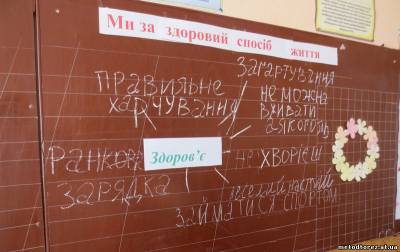 Ми за здоровий спосіб життя
Загартування
правильне
харчування
не можна
вживати
алкоголь
Ранкова
зарядка
Здоров'є
не хворієш
веселий настрій
займатися спортом
metodtorez.at.ua